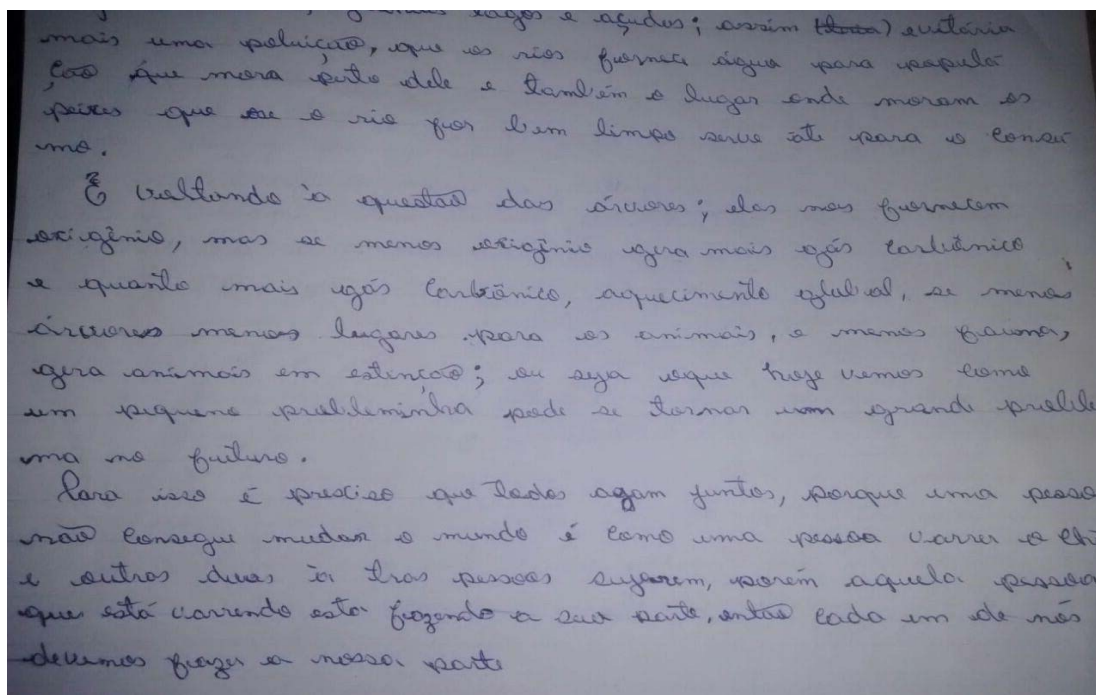 lagos e açudes; assim (ttoca) evitária
mais uma poluição, que os rios fornece água para populá
ção que mora perto dele e também o lugar onde moram os
peixes que se o rio for bem limpo serve até para o consu
mo.
E voltando à questão das árvores; elas nos fornecem
oxigênio, mas se menos oxigênio gera mais gás carbônico
e quanto mais gás carbônico, aquecimento global, se menos
árvores menos lugares para os animais, e menos fauna,
gera animais em estinção; ou seja oque hoje vemos como
um pequeno probleminha pode se tornar um grande proble
ma no futuro.
Para isso é preciso que todos agam juntos, porque uma pesso
não consegue mudar o mundo é como uma pessoa varrer o ch
e outros duas à tras pessoas sujarem, porém aquela pessoa
que está varrendo esta fazendo a sua parte, então cada um de nós
devemos fazer a nossa parte